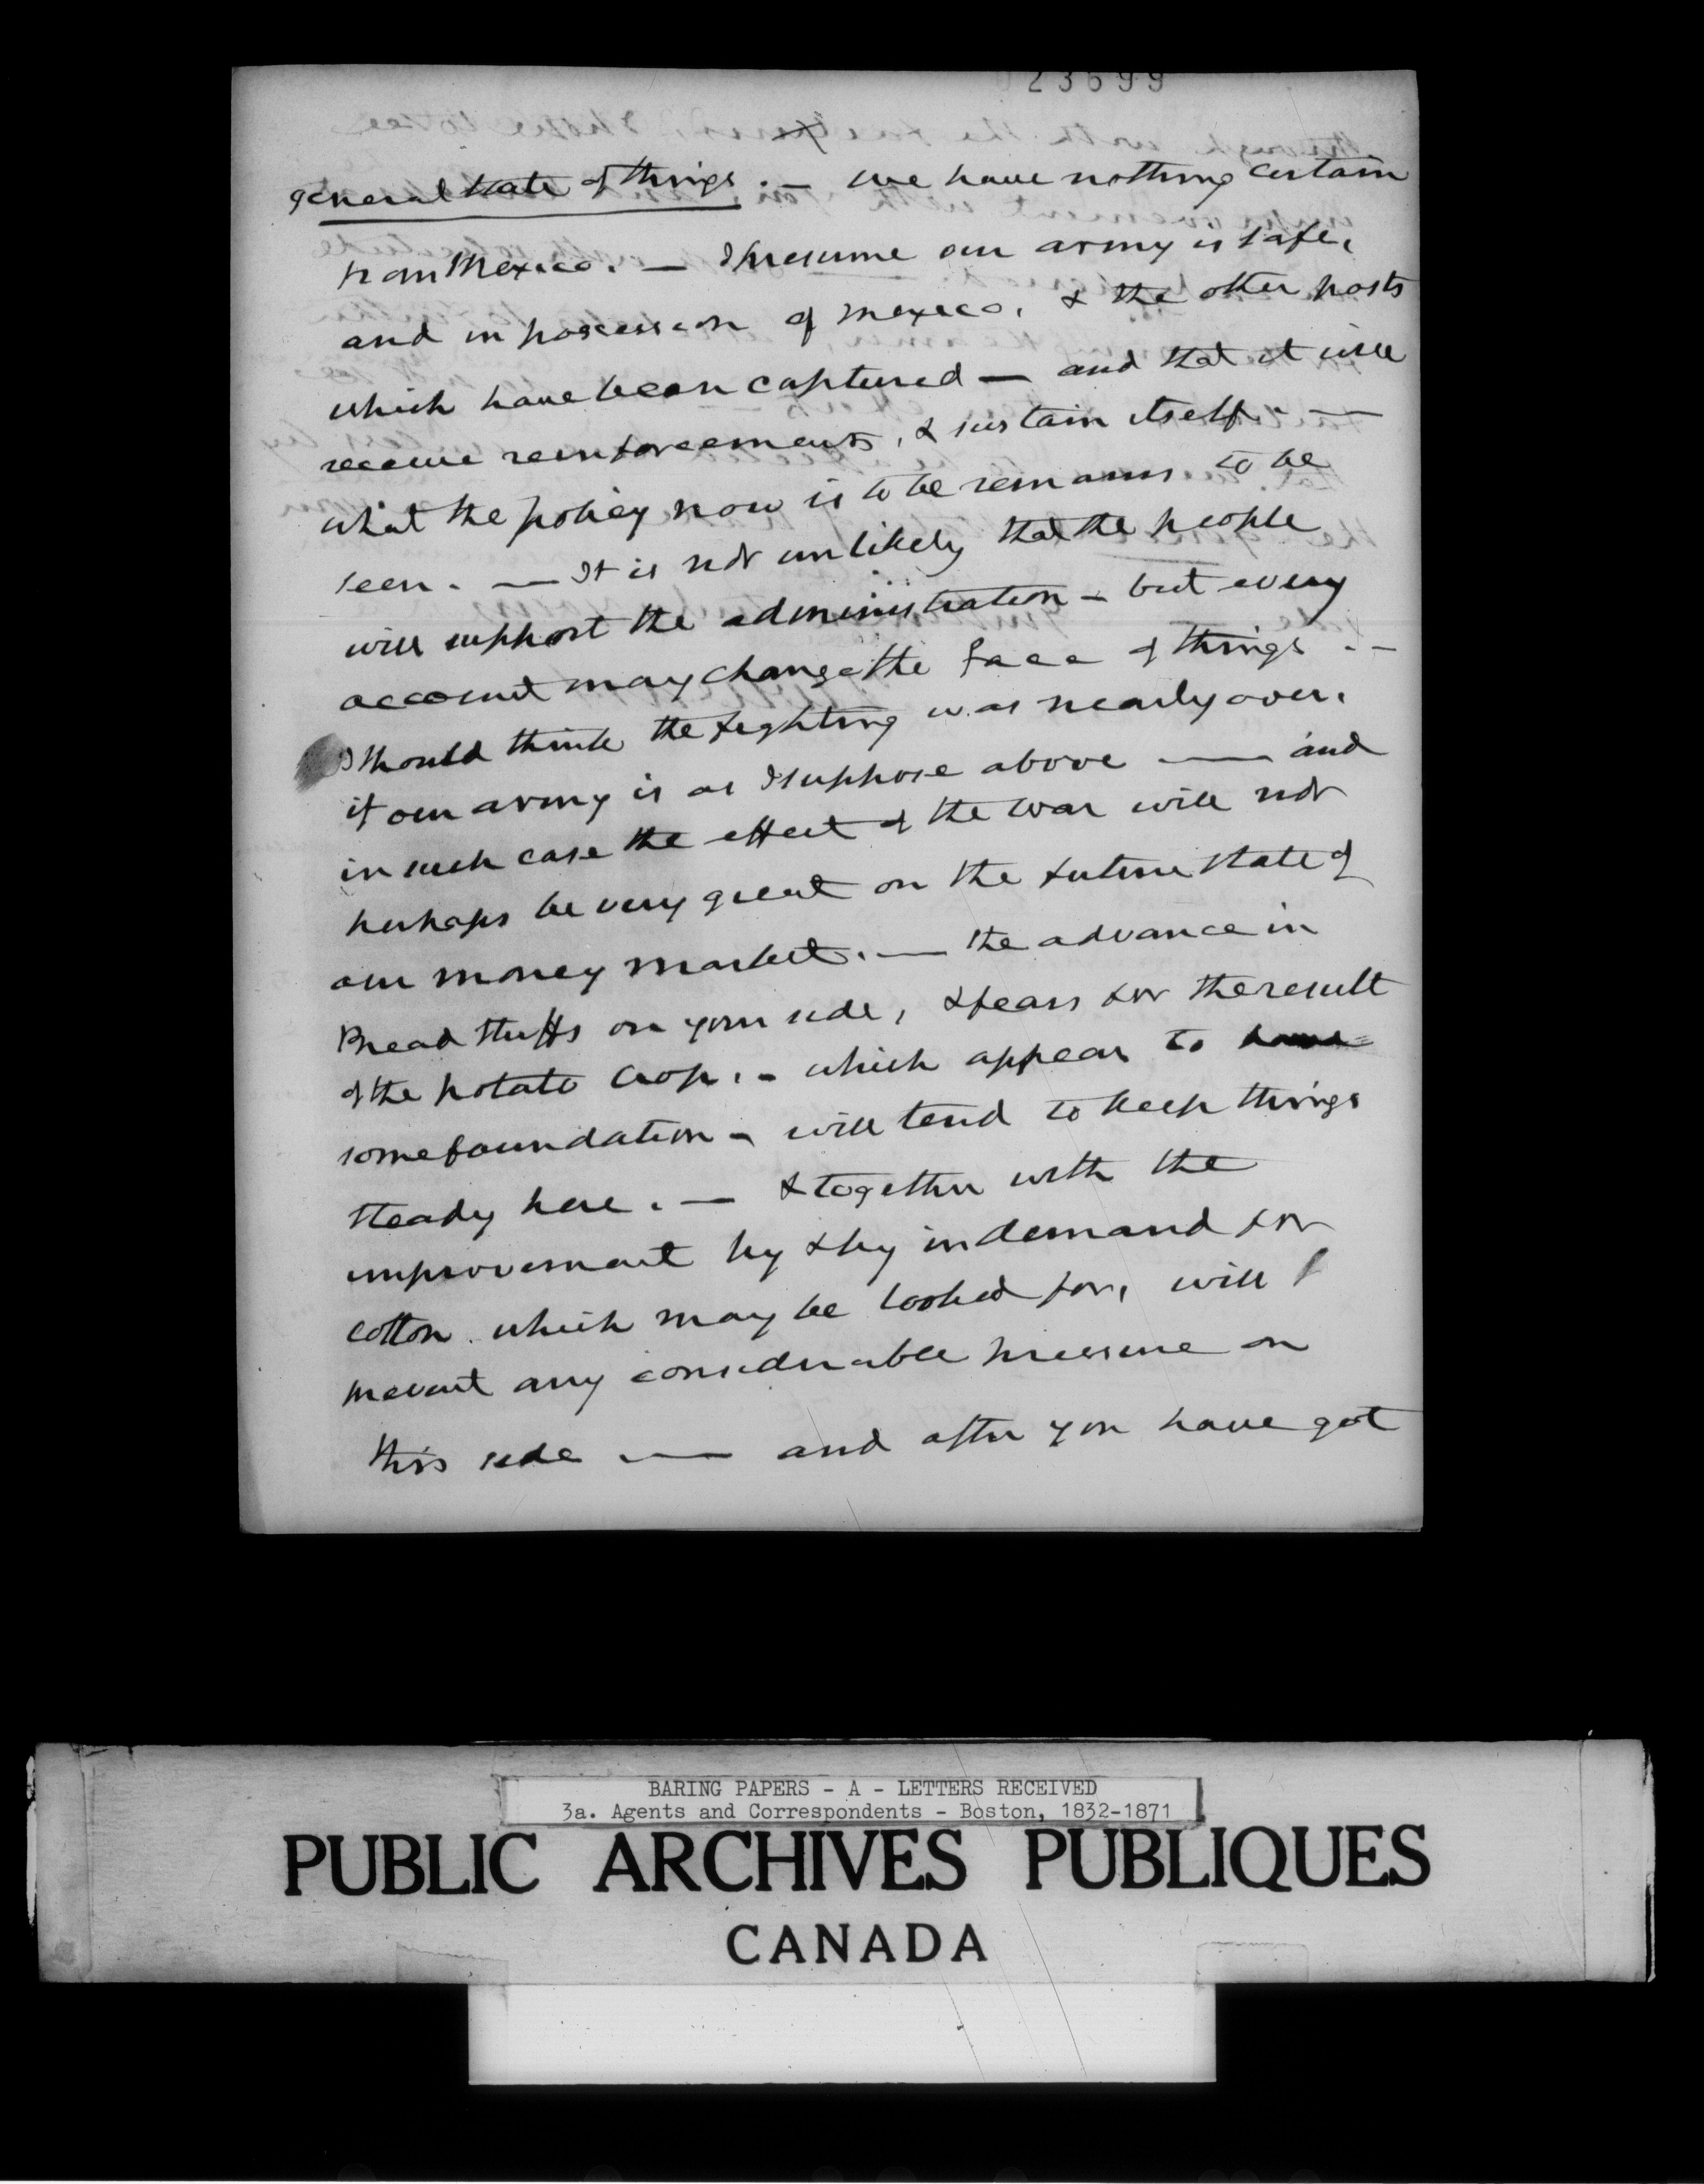 23699
general state of things. — we have nothing certain
from Mexico. — I presume our army is safe,
and in possession of Mexico, & the other posts
which have been captured — and that it will
receive reinforcements, & sustain itself. —
what the policy now is to be remains to be
seen. — It is not unlikely that the people
will support the administration – but every
account may change the face of things. –
I should think the fighting was nearly over,
if our army is as I suppose above — and
in such case the effect of the war will not
perhaps be very great on the future state of
our money market. — the advance in
Bread stuffs on your side, & fears for the result
of the potato crop. – which appear to have
some foundation – will tend to keep things
steady here. — & together with the
improvement by & by in demand for
cotton which may be looked for, will
prevent any considerable pressure on
this side — and after you have got
BARING PAPERS - A - LETTERS RECEIVED
3a. Agents and Correspondents - Boston, 1832-1871
PUBLIC ARCHIVES PUBLIQUES
CANADA